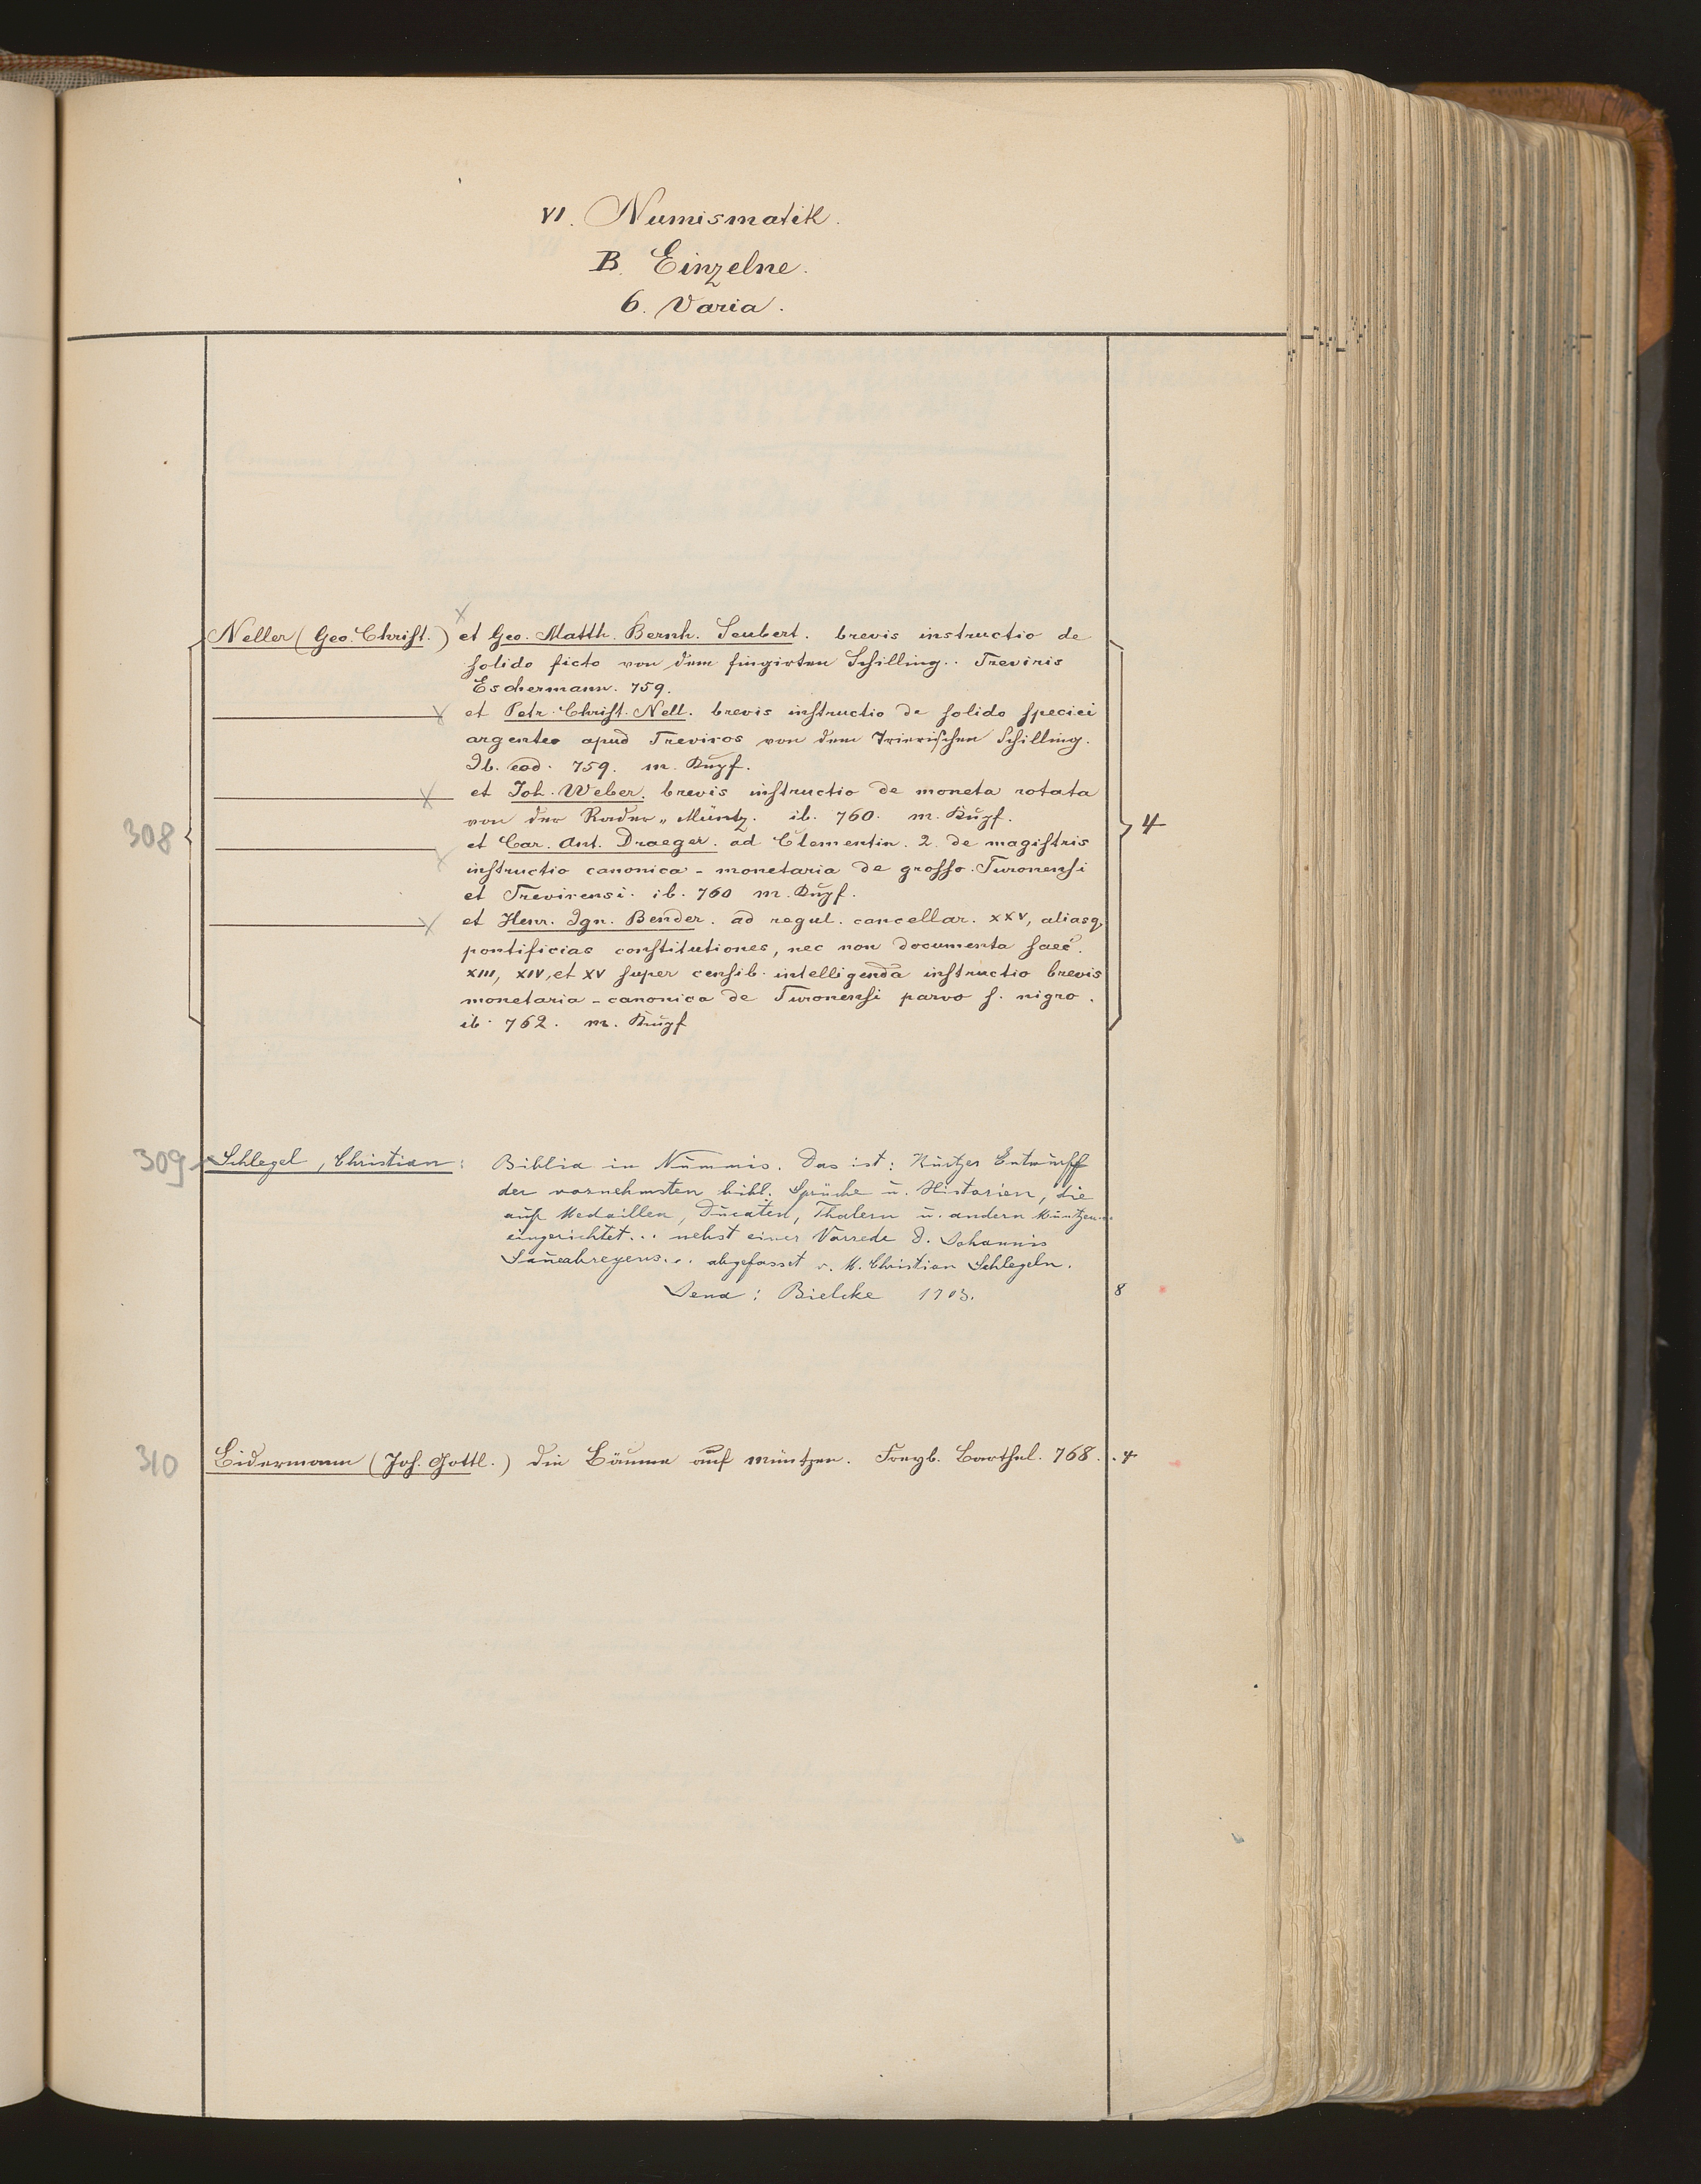 VI. Numismatik.
B. Einzelne.
6. Varia.
308
Neller (Geo. Christ.) et Geo. Matth. Bernh. Seubert. brevis instructio de
solido ficto von dem fingirten Schilling.. Treviris
Eschermann. 759.
et Petr. Christ. Nell. brevis instructio de solido speciei
argenteo apud Treviros von dem Trierischen Schilling.
Ib. eod. 759. m. Kupf.
et Joh. Weber. brevis instructio de moneta rotata
von der Rader-Müntz. ib. 760. m. Kupf.
et Car. Ant. Draeger. ad Clementin. 2. de magistris
instructio canonica-monetaria de grosso Turonensi
et Trevirensi. ib. 760 m. Kupf.
et Henr. Ign. Bender. ad regul. cancellar. XXV, aliasq.
pontificias constitutiones, nec non documenta saec.
XIII, XIV, et XV super censib. intelligenda instructio brevis
monetaria-canonica de Turonensi parvo s. nigro.
ib. 762. m. Kupf
4
309 Schlegel, Christian: Biblia in Nummis. Das ist: Kurtzer Entwurff
der vornehmsten bibl. Sprüche u. Historien, die
auf Medaillen, Ducaten, Thalern u. andern Müntzen..
eingerichtet... nebst einer Vorrede D. Johannis
... abgefasset v. M. Christian Schlegeln.
Jena: Bielcke 1703. 8
310 Bidermann (Joh. Gottl.) die Bäume auf müntzen. Freyb. Barthel. 768. 4